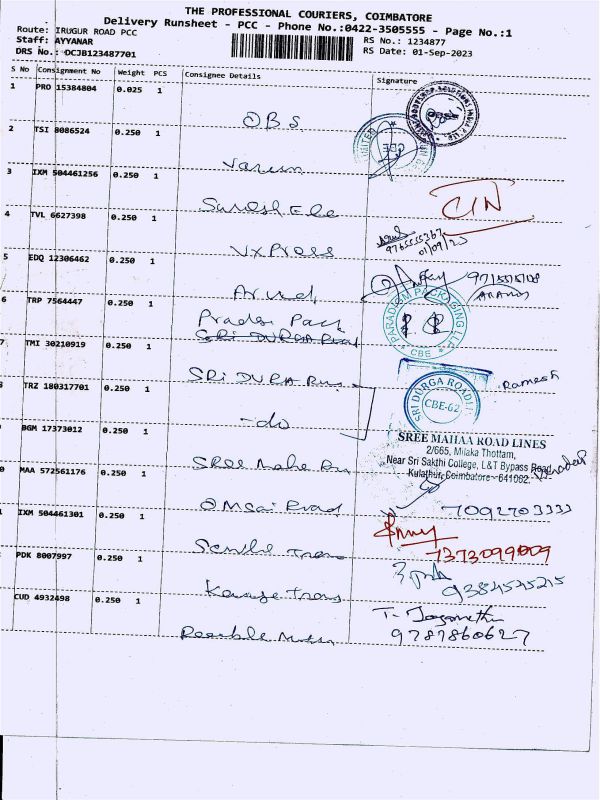 THE PROFESSIONAL COURIERS, COIMBATORE
Delivery Runsheet - PCC - Phone No.:0422-3505555 - Page No.:1
Route: IRUGUR ROAD PCC
Staff: AYYANAR
DRS No.: DCJB123487701
RS No.: 1234877
RS Date: 01-Sep-2023
S No Consignment No Weight PCS Consignee Details Signature
1 PRO 15384804 0.025 1
OBS
2 TSI 8086524 0.250 1
Varun
3 IXM 504461256 0.250 1
Suresh Ele
4 TVL 6627398 0.250 1
VXPress
9765555367
01/09/23
5 EDQ 12306462 0.250 1
6 TRP 7564447 0.250 1
Pack
PARADIGM PACKAGING LLP
CBE
7 TMI 30210919 0.250 1
SRI DURGA
TRZ 180317701 0.250 1
-do
SRI DURGA ROADLI
CBE-62
Ramesh
BGM 17373012 0.250 1
Sree Maha
SREE MAHAA ROAD LINES
2/665, Milaka Thottam,
Near Sri Sakthi College, L&T Bypass Road
Kulathur, Coimbatore-641062
MAA 572561176 0.250 1
OMSai Road
7092703333
IXM 504461301 0.250 1
Trans
7373099009
PDK 8007997 0.250 1
Trans
9384545215
CUD 4932498 0.250 1
T.
9787860627